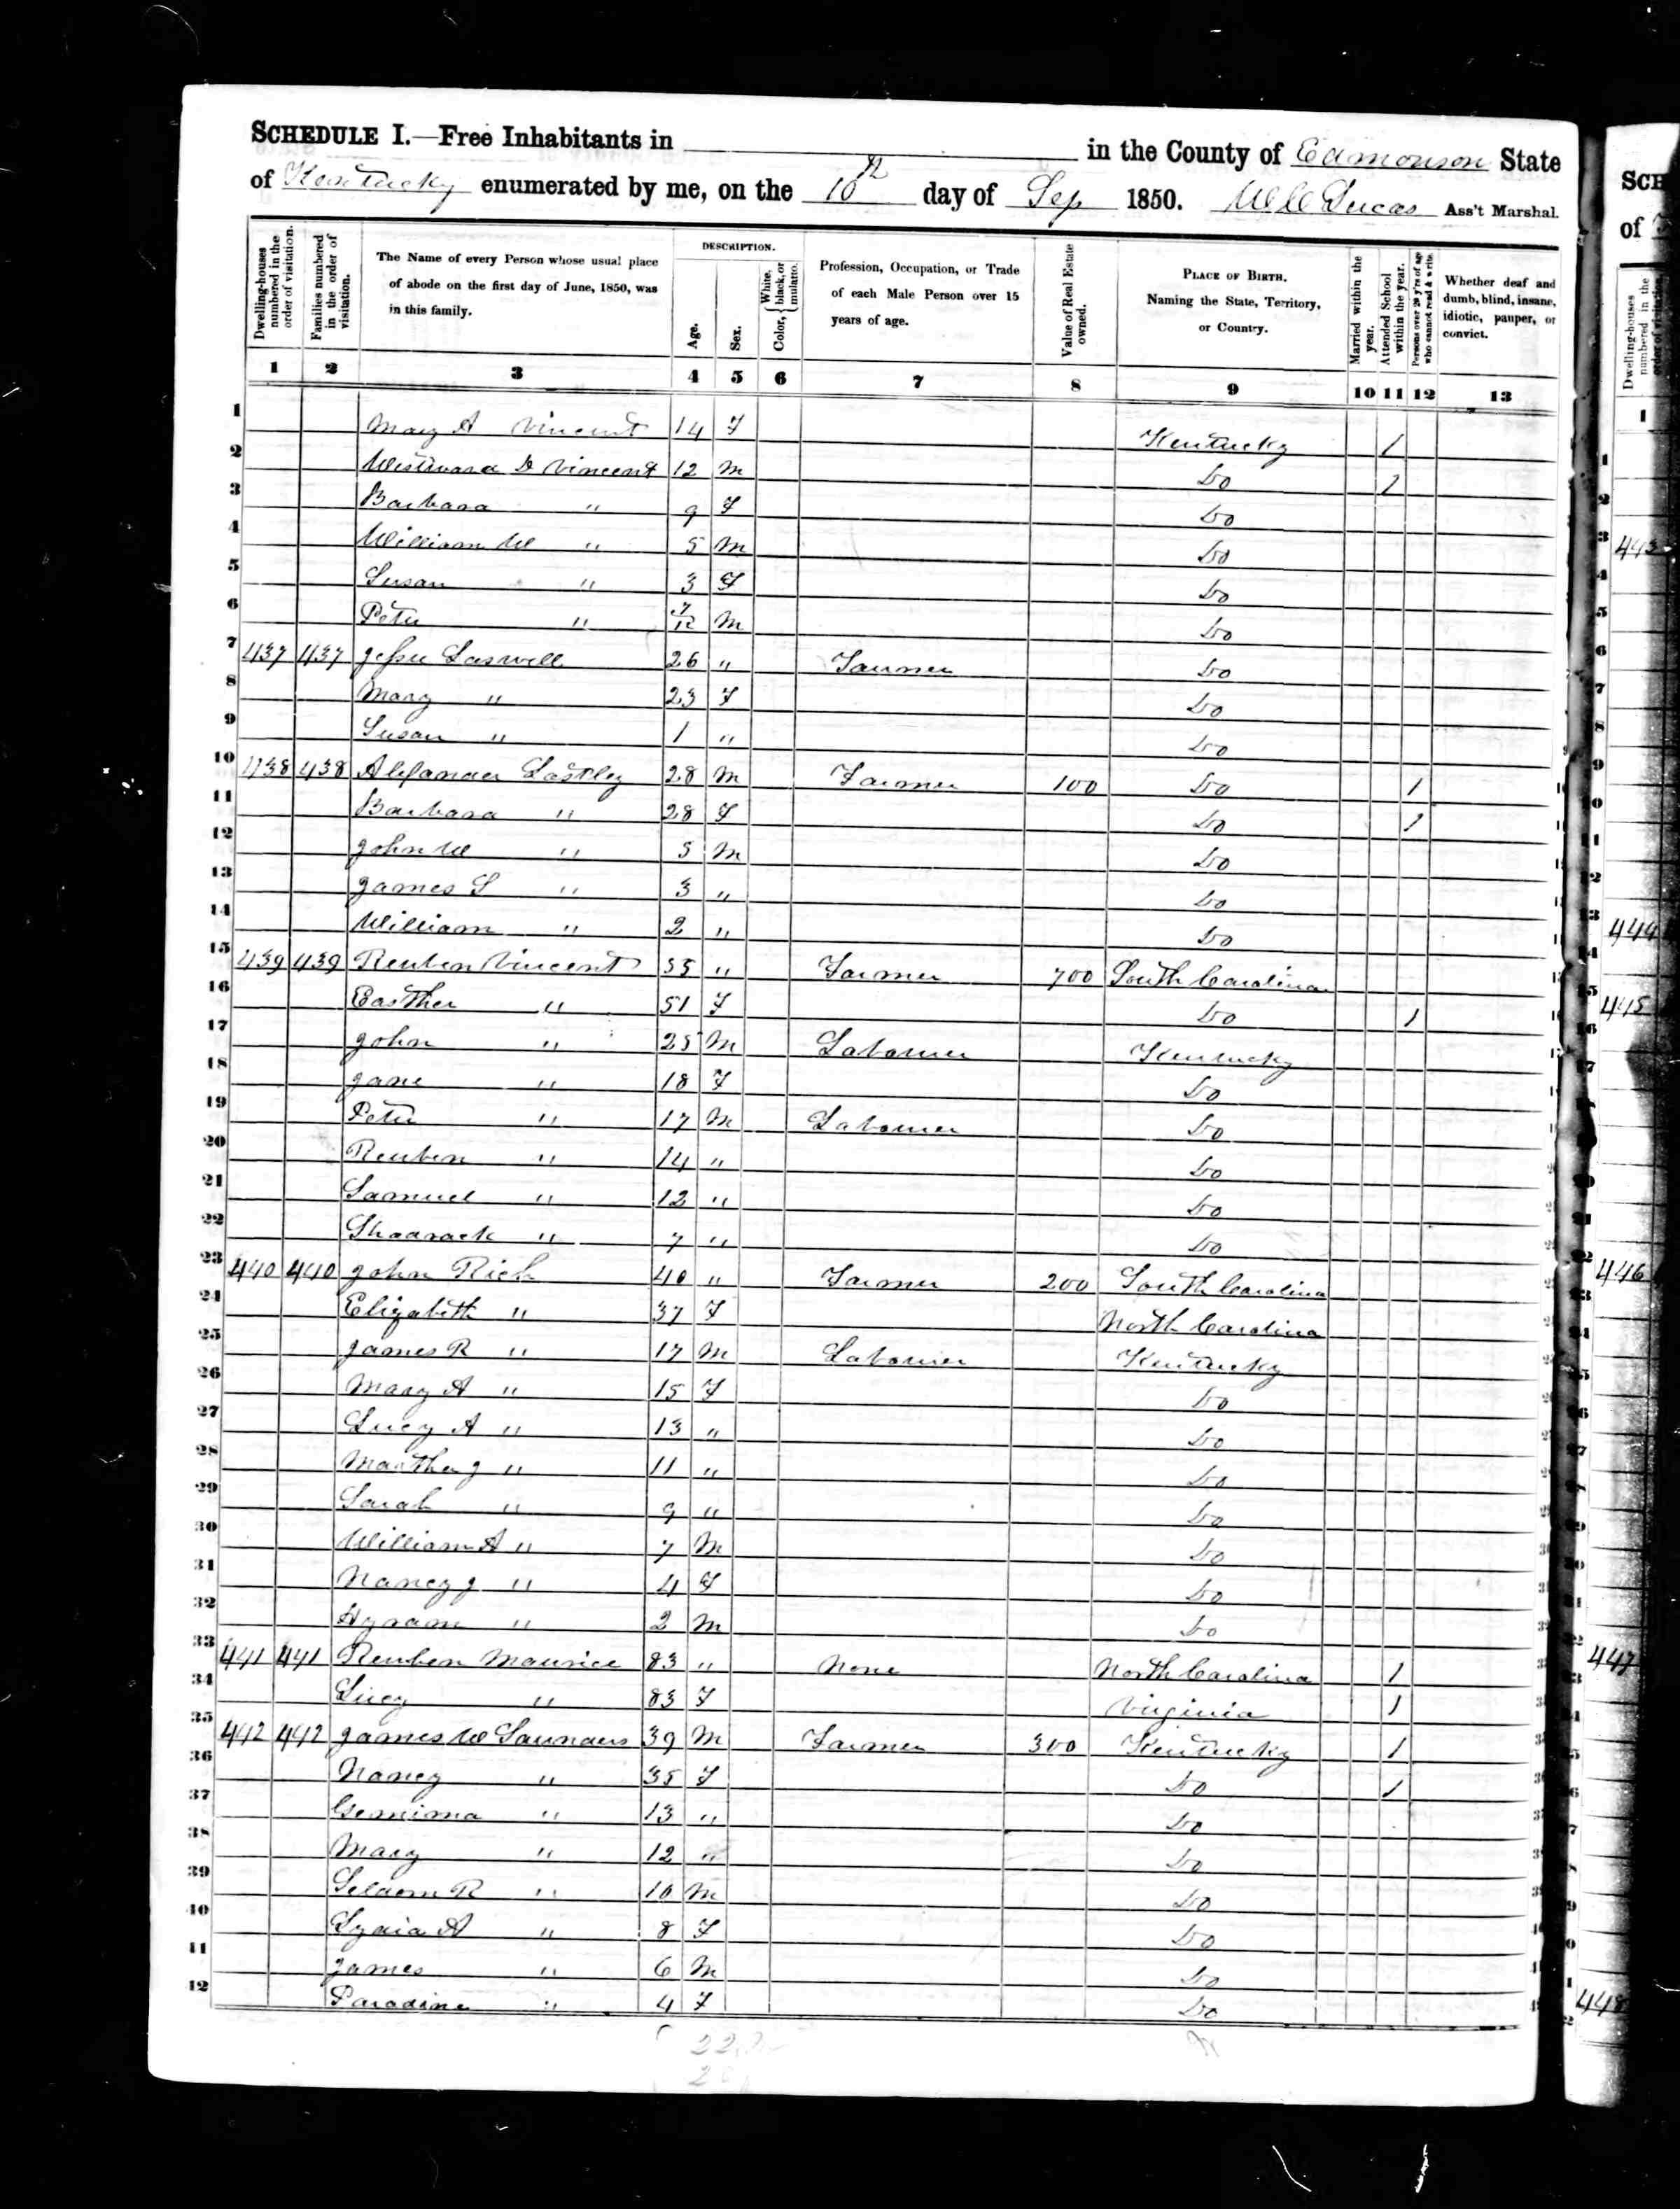 SCHEDULE I.—Free Inhabitants in in the County of Edmonson State
of Kentucky enumerated by me, on the 10th day of Sep 1850. Lucas Ass't Marshal.
Dwelling-houses numbered in the order of visitation.
Families numbered in the order of visitation.
The Name of every Person whose usual place of abode on the first day of June, 1850, was in this family.
DESCRIPTION.
Age.
Sex.
Color, { White, black, or mulatto.
Profession, Occupation, or Trade of each Male Person over 15 years of age.
Value of Real Estate owned.
PLACE OF BIRTH. Naming the State, Territory, or Country.
Married within the year.
Attended School within the year.
Persons over 20 y'rs of age who cannot read & write.
Whether deaf and dumb, blind, insane, idiotic, pauper, or convict.
1 2 3 4 5 6 7 8 9 10 11 12 13
1 Mary A Vincent 14 F Kentucky 1
2 Vincent 12 M Do 1
3 Barbara " 9 F Do
4 William W " 5 M Do
5 Susan " 3 F Do
6 Peter " 7/12 M Do
7 437 437 Jesse Laswell 26 " Farmer Do
8 Mary " 23 F Do
9 Susan " 1 " Do
10 438 438 Alexander Lashley 28 M Farmer 100 Do 1
11 Barbara " 28 F Do 1
12 John W " 5 M Do
13 James S " 3 " Do
14 William " 2 " Do
15 439 439 Reuben Vincent 55 " Farmer 700 South Carolina
16 Easther " 51 F Do 1
17 John " 25 M Labourer Kentucky
18 Jane " 18 F Do
19 Peter " 17 M Labourer Do
20 Reuben " 14 " Do
21 Samuel " 12 " Do
22 Shadrack " 7 " Do
23 440 440 John Rich 40 " Farmer 200 South Carolina
24 Elizabeth " 37 F North Carolina
25 James R " 17 M Labourer Kentucky
26 Mary A " 15 F Do
27 Lucy A " 13 " Do
28 Martha J " 11 " Do
29 Sarah " 9 " Do
30 William A " 7 M Do
31 Nancy J " 4 F Do
32 Hyram " 2 M Do
33 441 441 Reuben Maurice 83 " None North Carolina 1
34 Lucy " 83 F Virginia 1
35 442 442 James W Saunders 39 M Farmer 300 Kentucky 1
36 Nancy " 35 F Do 1
37 Gemima " 13 " Do
38 Mary " 12 " Do
39 Seldom R " 10 M Do
40 Lydia A " 8 F Do
41 James " 6 M Do
42 Paradine " 4 F Do
SCH
of
Dwelling-houses numbered in the order of visitation.
1
443
444
445
446
447
448